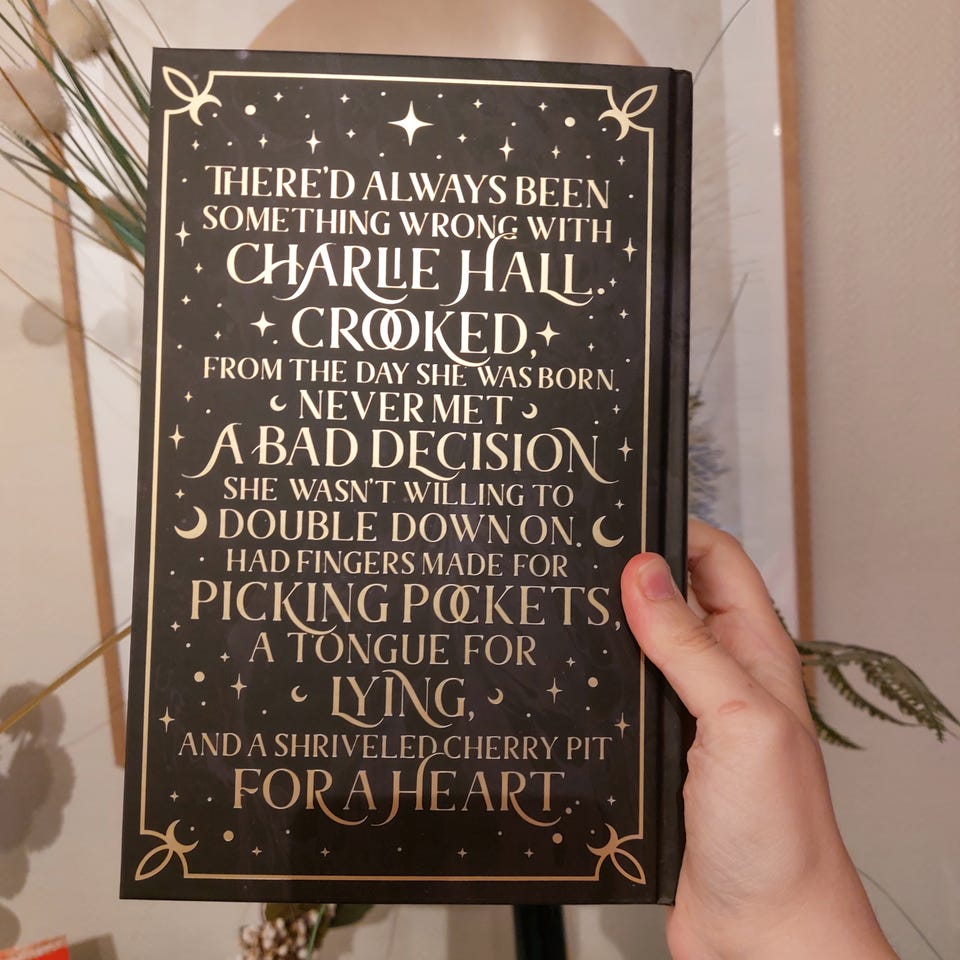 THERE'D ALWAYS BEEN
SOMETHING WRONG WITH
CHARLIE HALL.
CROOKED,
FROM THE DAY SHE WAS BORN.
NEVER MET
A BAD DECISION
SHE WASN'T WILLING TO
DOUBLE DOWN ON.
HAD FINGERS MADE FOR
PICKING POCKETS,
A TONGUE FOR
LYING,
AND A SHRIVELED CHERRY PIT
FOR A HEART.